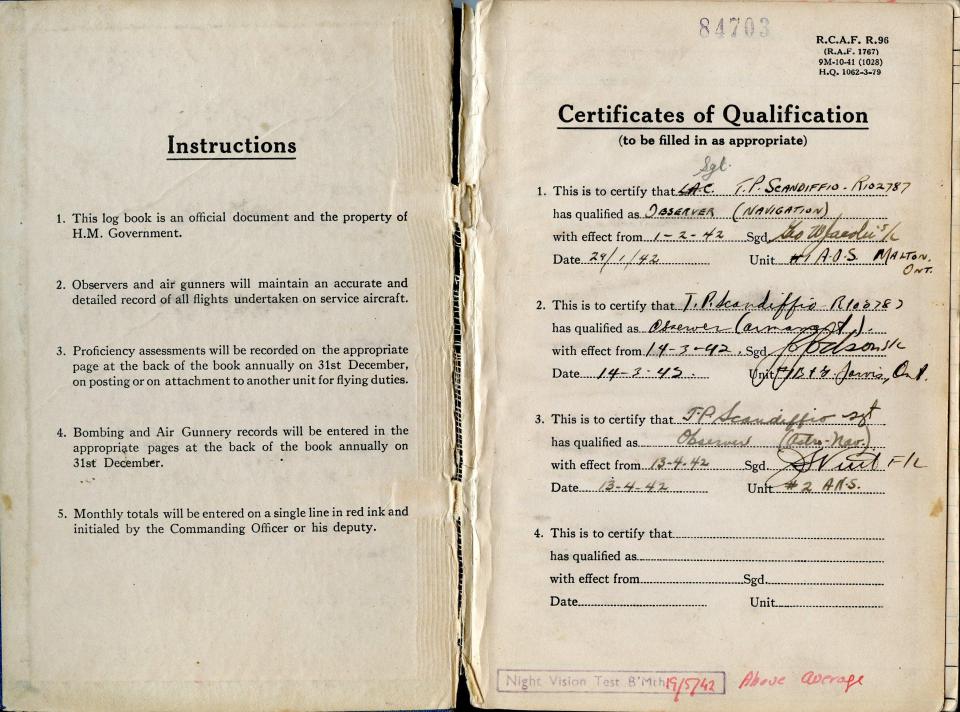 Instructions
1. This log book is an official document and the property of
H.M. Government.
2. Observers and air gunners will maintain an accurate and
detailed record of all flights undertaken on service aircraft.
3. Proficiency assessments will be recorded on the appropriate
page at the back of the book annually on 31st December,
on posting or on attachment to another unit for flying duties.
4. Bombing and Air Gunnery records will be entered in the
appropriate pages at the back of the book annually on
31st December.
5. Monthly totals will be entered on a single line in red ink and
initialed by the Commanding Officer or his deputy.
84703
R.C.A.F. R.96
(R.A.F. 1767)
9M-10-41 (1028)
H.Q. 1062-3-79
Certificates of Qualification
(to be filled in as appropriate)
Sgt.
1. This is to certify that LAC. T.P. SCANDIFFIO - R102787
has qualified as OBSERVER (NAVIGATION)
with effect from 1-2-42 Sgd. S/L
Date 29/1/42 Unit #1 A.O.S. MALTON.
ONT.
2. This is to certify that T.P. Scandiffio - R102787
has qualified as Observer (armament).
with effect from 14-3-42. Sgd. S/L
Date 14-3-42. Unit Jarvis, Ont.
3. This is to certify that T P Scandiffio sgt
has qualified as Observer (Astro-Nav.)
with effect from 13-4-42 Sgd. F/L
Date 13-4-42 Unit #2 A.N.S.
4. This is to certify that
has qualified as
with effect from Sgd.
Date Unit
Night Vision Test B'Mth 19/5/42 Above average